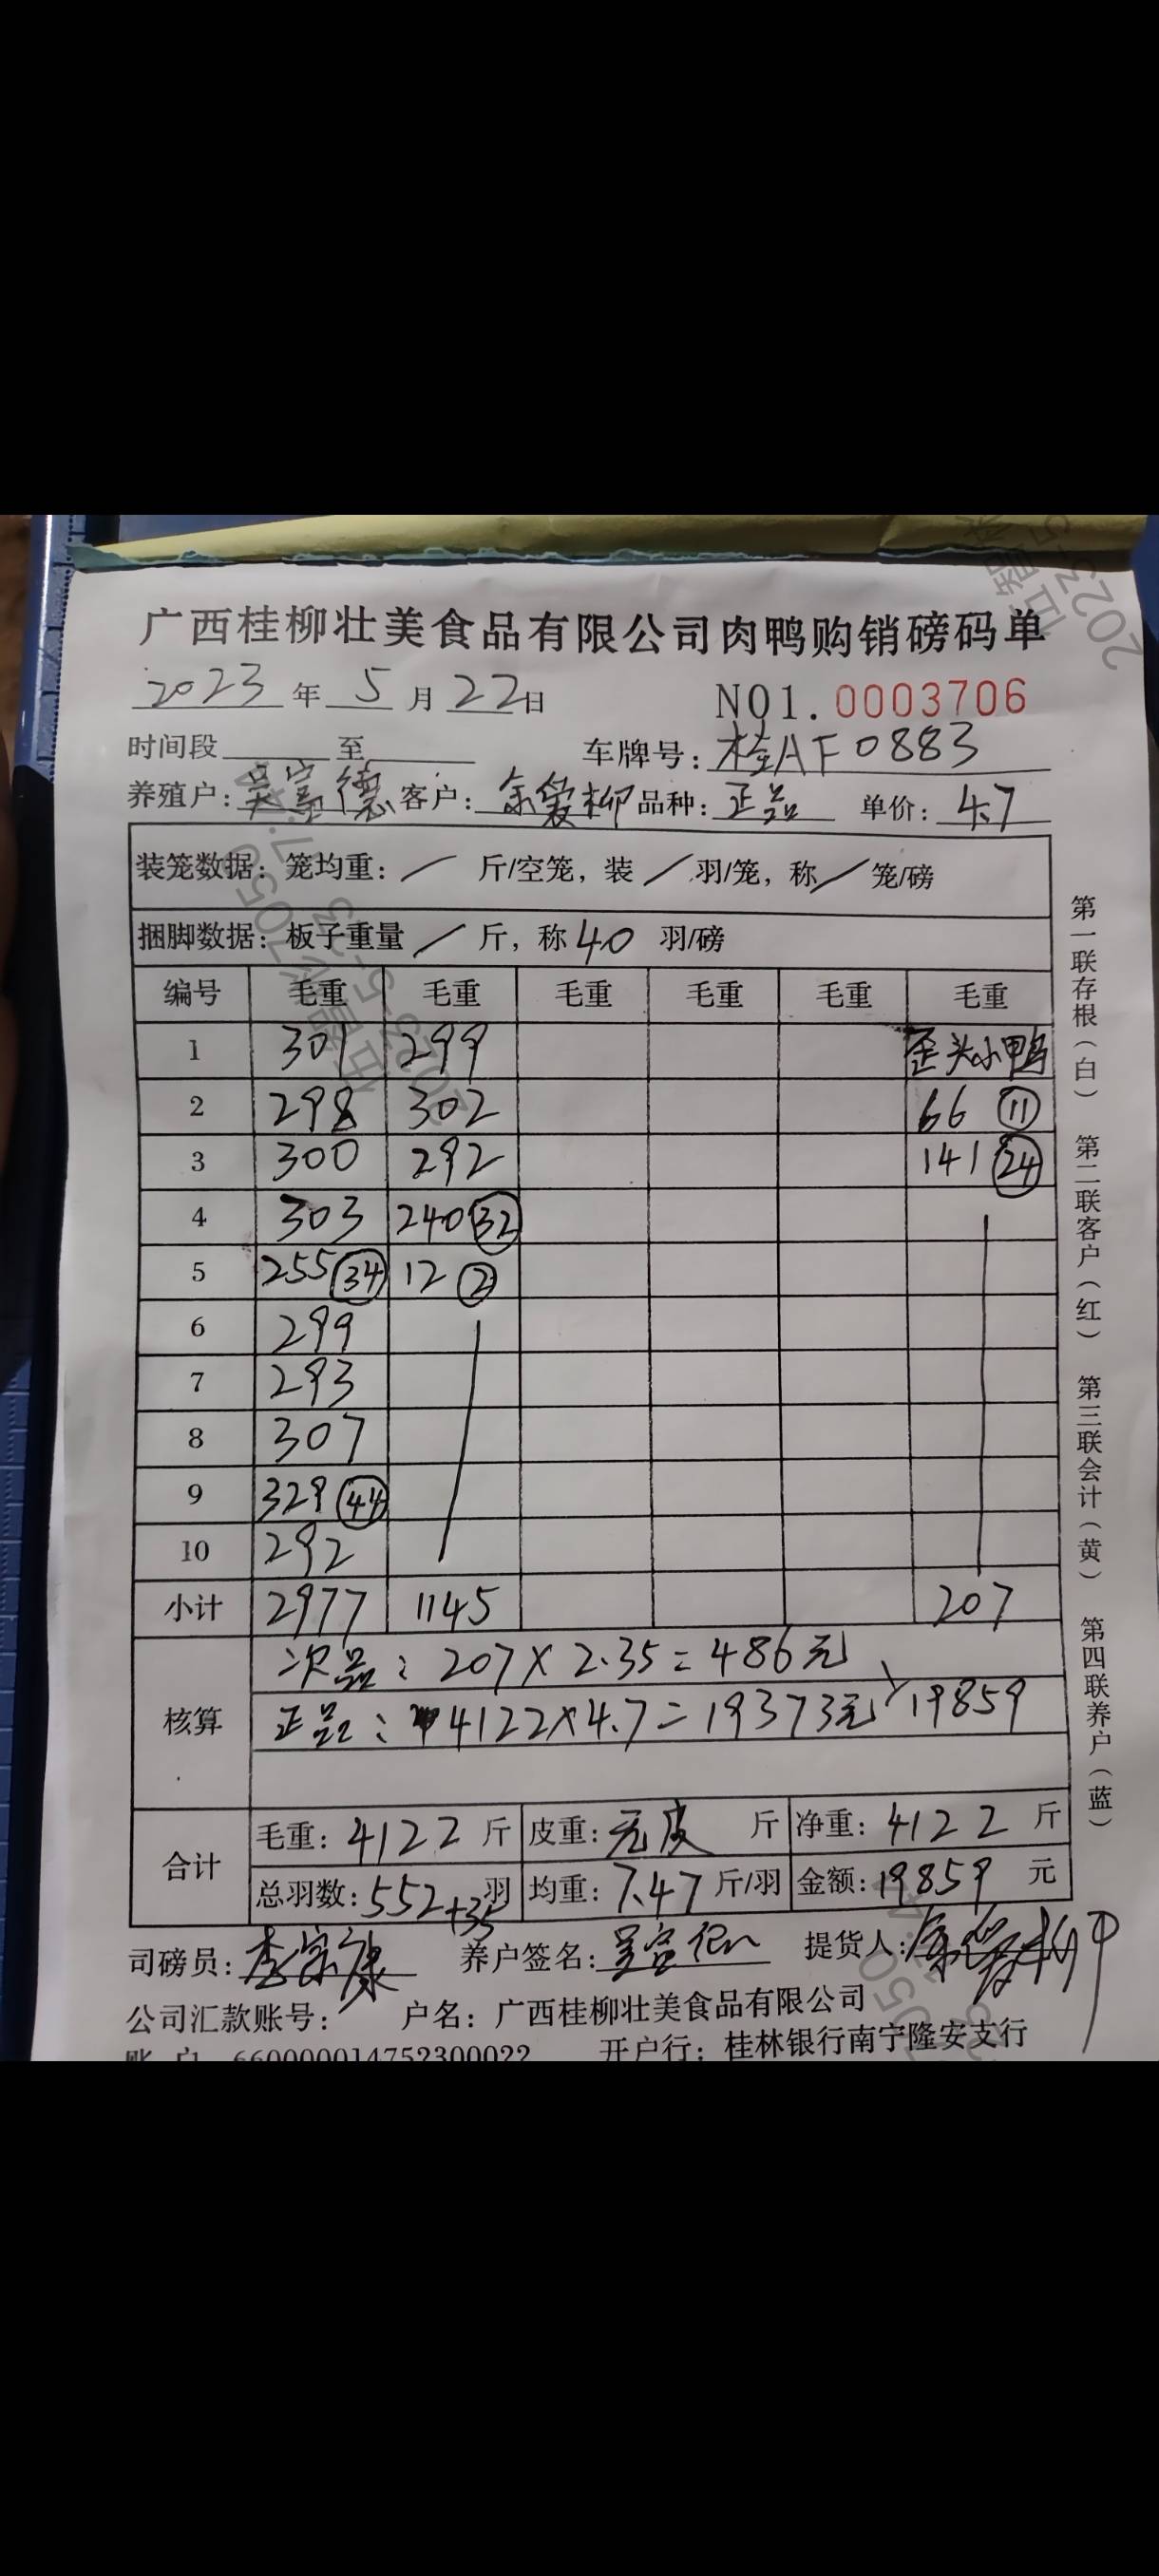 广西桂柳壮美食品有限公司肉鸭购销磅码单
2023年5月22日 NO1.0003706
时间段 至 车牌号：桂AF0883
养殖户： 德 客户：余爱柳 品种：正品 单价：4.7
装笼数据：笼均重：／ 斤/空笼，装／羽/笼，称／笼/磅
捆脚数据：板子重量／斤，称40羽/磅
编号 毛重 毛重 毛重 毛重 毛重 毛重
1 301 299 歪头小鸭
2 298 302 66 11
3 300 292 141 24
4 303 240 32
5 255 34 12 2
6 299
7 293
8 307
9 329 44
10 292
小计 2977 1145 207
次品：207×2.35=486元
核算 正品：4122×4.7=19373元 19859
合计 毛重：4122斤 皮重：无皮 斤 净重：4122斤
总羽数：552+35羽 均重：7.47斤/羽 金额：19859元
司磅员：李宗康 养户签名： 提货人：余爱柳
公司汇款账号： 户名：广西桂柳壮美食品有限公司
账 户 660000014752300022 开户行：桂林银行南宁隆安支行
第一联存根（白） 第二联客户（红） 第三联会计（黄） 第四联养户（蓝）